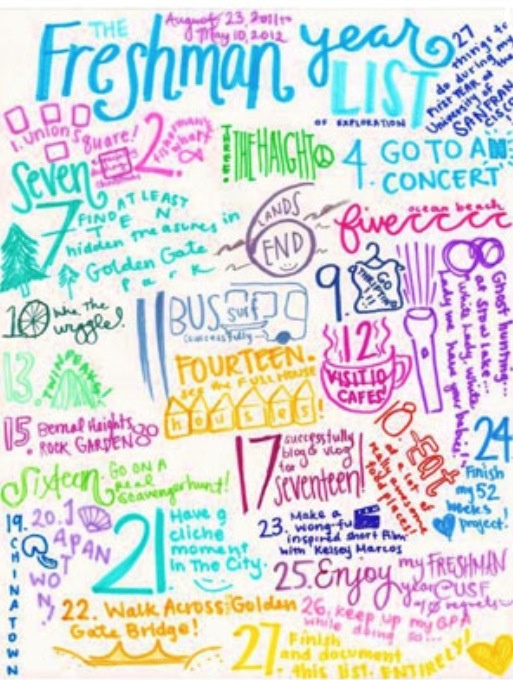 THE
Freshman year
August 23, 2011 to
May 10, 2012
LIST
OF EXPLORATION
27
things to
do during my
FIRST YEAR at the
University of
SAN FRAN
CISCO
1. Union Square!
2. Fisherman's
wharf
Three.
THE HAIGHT
4. GO TO AN
CONCERT
five ocean beach
6
LANDS
END
seven
7 AT LEAST
FIND TEN
hidden treasures in
Golden Gate
Park
Ghost hunting...
at Stow Lake...
White lady, white
lady we have your babies!
9. GO
THRIFTING!!
10 the
wiggle!
11 BUS surf
(successfully...)
12
VISIT 10
CAFES
13. TWIN PEAKS!
FOURTEEN.
see the FULL HOUSE
houses!
15 Bernal Heights
ROCK GARDEN
Sixteen. GO ON A
real
scavenger hunt!
17 successfully
blog & vlog
for
seventeen!
18. EAT
at a lot of
really awesome
food places!
19.
CHINATOWN
20. JAPAN
TOWN
21 Have a
cliche
moment
In The City.
22. Walk Across Golden
Gate Bridge!
23. Make a
wong-fu
inspired short film
with Kelsey Marcos
24
Finish
my 52
weeks
project!
25. Enjoy my FRESHMAN
year @USF
regrets
26. keep up my GPA
while doing so...
27 Finish
and document
this list. ENTIRELY!